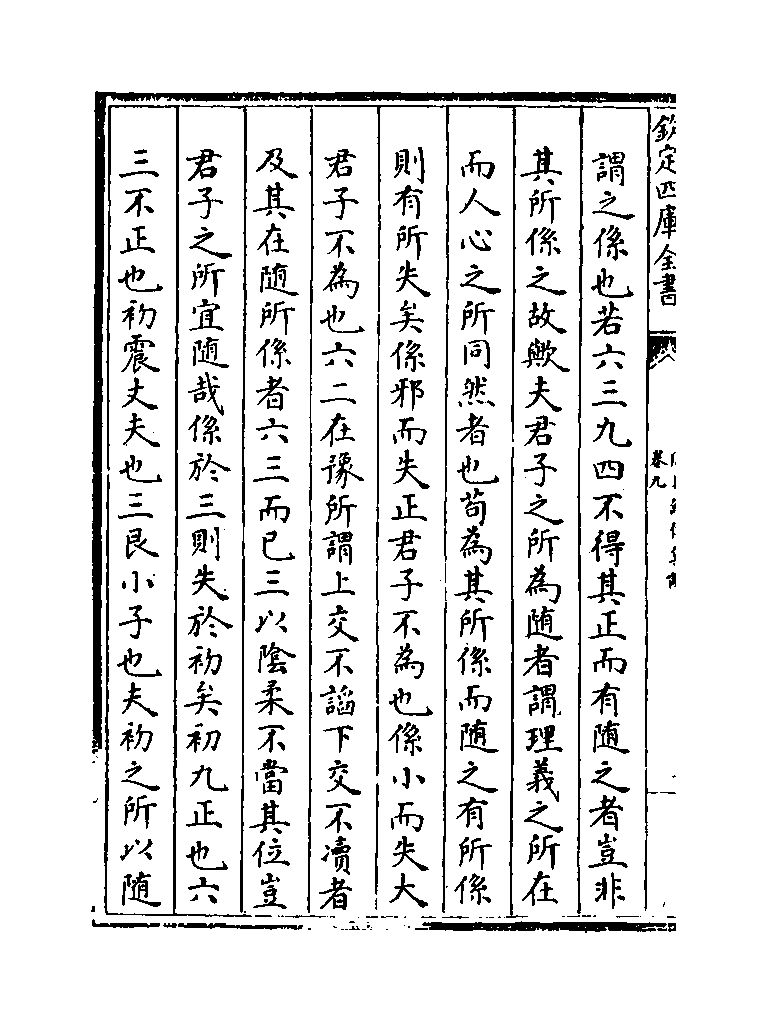 欽定四庫全書
卷九
謂之係也若六三九四不得其正而有隨之者豈非
其所係之故歟夫君子之所為随者謂理義之所在
而人心之所同然者也苟為其所係而随之有所係
則有所失矣係邪而失正君子不為也係小而失大
君子不為也六二在豫所謂上交不謟下交不凟者
及其在隨所係者六三而已三以陰柔不當其位豈
君子之所宜随哉係於三則失於初矣初九正也六
三不正也初震丈夫也三艮小子也夫初之所以随